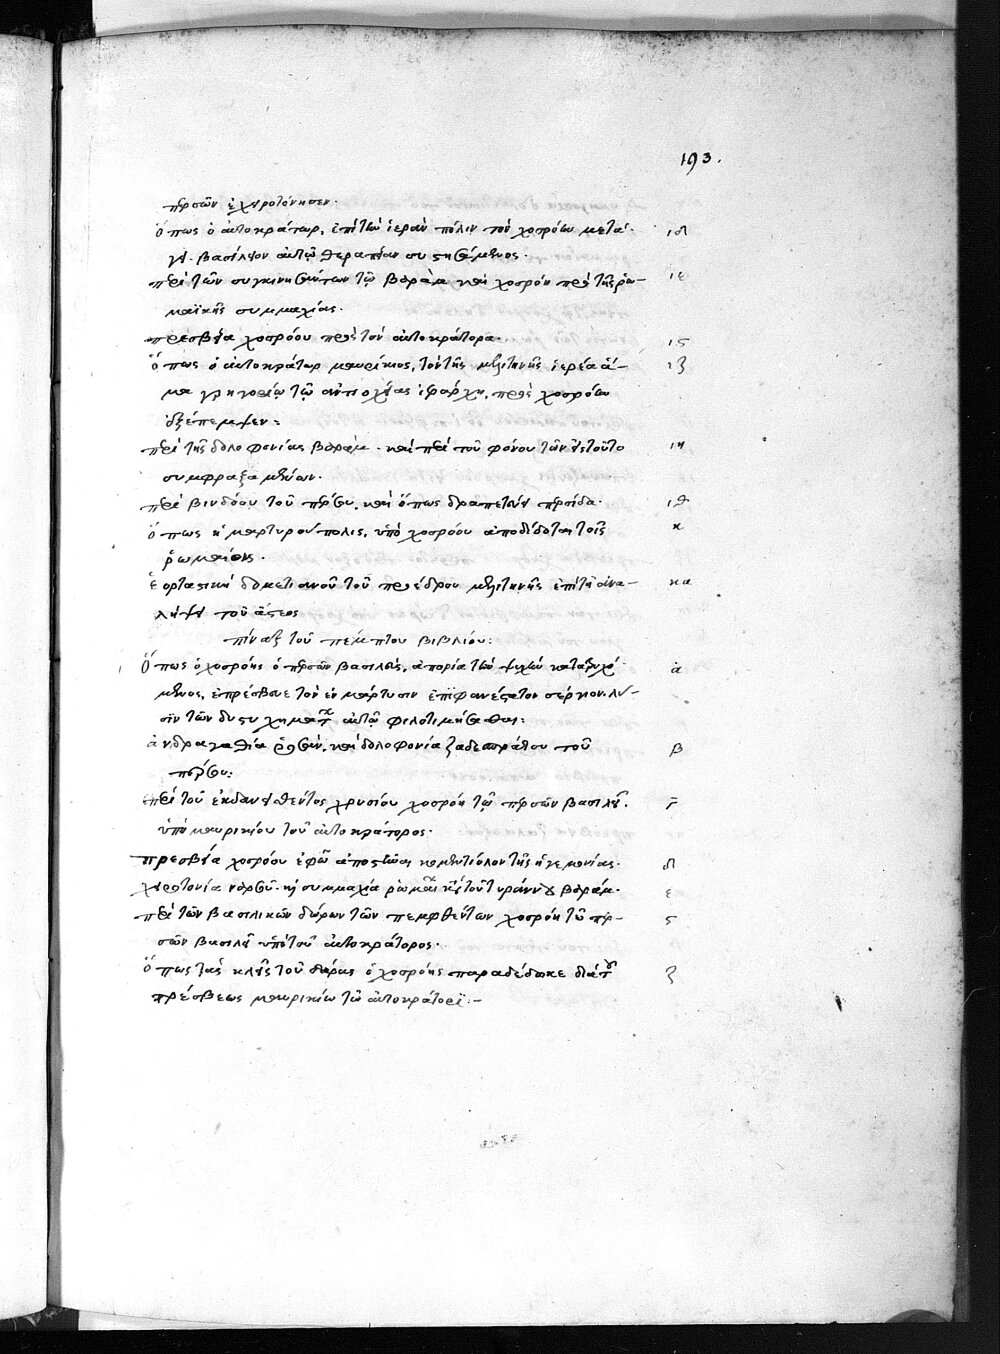 193.
περσῶν ἐχειροτόνησεν.
ὅπως ὁ αὐτοκράτωρ, ἐπὶ τὴν ἱερὰν πόλιν τὸν χοσρόην μετά- ιδ
γει. βασίλειον αὐτῷ θεραπείαν συστησάμενος.
περὶ τῶν συγκινηθέντων τῷ βαρὰμ καὶ χοσρόῃ πρὸ τῆς ῥω- ιε
μαϊκῆς συμμαχίας.
πρεσβεία χοσρόου πρὸς τὸν αὐτοκράτορα. ις
ὅπως ὁ αὐτοκράτωρ μαυρίκιος, τὸν τῆς μελιτηνῆς ἱερέα ἅ- ιζ
μα γρηγορίῳ τῷ ἀντιοχείας ἱεράρχῃ, πρὸς χοσρόην
ἐξέπεμψεν:
περὶ τῆς δολοφονίας βαράμ. καὶ περὶ τοῦ φόνου τῶν εἰς τοῦτο ιη
συμφραξαμένων.
περὶ βινδόου τοῦ πέρσου, καὶ ὅπως δραπετεύει περσίδα. ιθ
ὅπως ἡ μαρτυρούπολις, ὑπὸ χοσρόου ἀποδίδοται τοῖς κ
ῥωμαίοις.
ἑορταστικὴ δομετιανοῦ τοῦ προέδρου μελιτηνῆς ἐπὶ τῇ ἀνα- κα
λήψει τοῦ ἄστεος
πίναξ τοῦ πέμπτου βιβλίου:
ὅπως ὁ χοσρόης ὁ περσῶν βασιλεὺς, ἀπορία τὴν ψυχὴν καταψυχό- α
μενος, ἐπρέσβευε τὸν ἐν μάρτυσιν ἐπιφανέστατον σέργιον λύ-
σιν τῶν δυστυχημάτων αὐτῷ φιλοτιμήσασθαι:
ἀνδραγαθία ῥοσᾶν. καὶ δολοφονία ζαδεσπράτου τοῦ β
πέρσου:
περὶ τοῦ ἐκδανεισθέντος χρυσίου χοσρόῃ τῷ περσῶν βασιλεῖ. γ
ὑπὸ μαυρικίου τοῦ αὐτοκράτορος.
πρεσβεία χοσρόου ἐφ' ᾧ ἀποστῶσαι κομεντίολον τῆς ἡγεμονίας. δ
χειροτονία ναρσοῦ. καὶ συμμαχία ῥωμαίων κατὰ τοῦ τυράννου βαράμ. ε
περὶ τῶν βασιλικῶν δώρων τῶν πεμφθέντων χοσρόῃ τῷ περ- ς
σῶν βασιλεῖ ὑπὸ τοῦ αὐτοκράτορος.
ὅπως τὰς κλεῖς τοῦ δάρας ὁ χοσρόης παραδέδωκε διὰ τοῦ ζ
πρέσβεως μαυρικίῳ τῷ αὐτοκράτορι:-